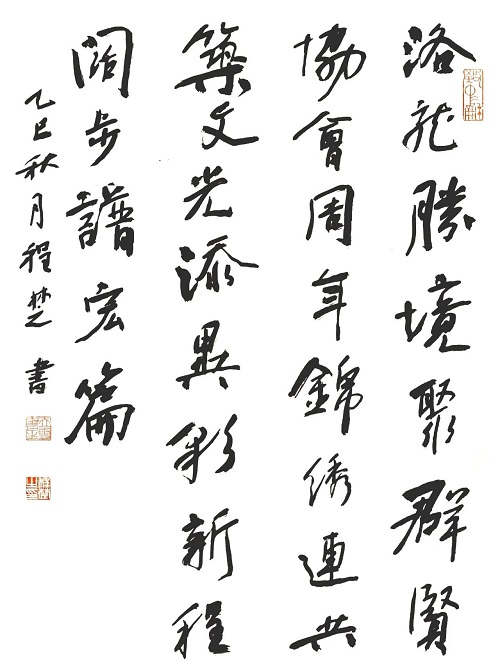 洛龙勝境聚群賢
協會周年錦绣連共
築文光添異彩新程
闊步譜宏篇
乙巳秋月程楚書